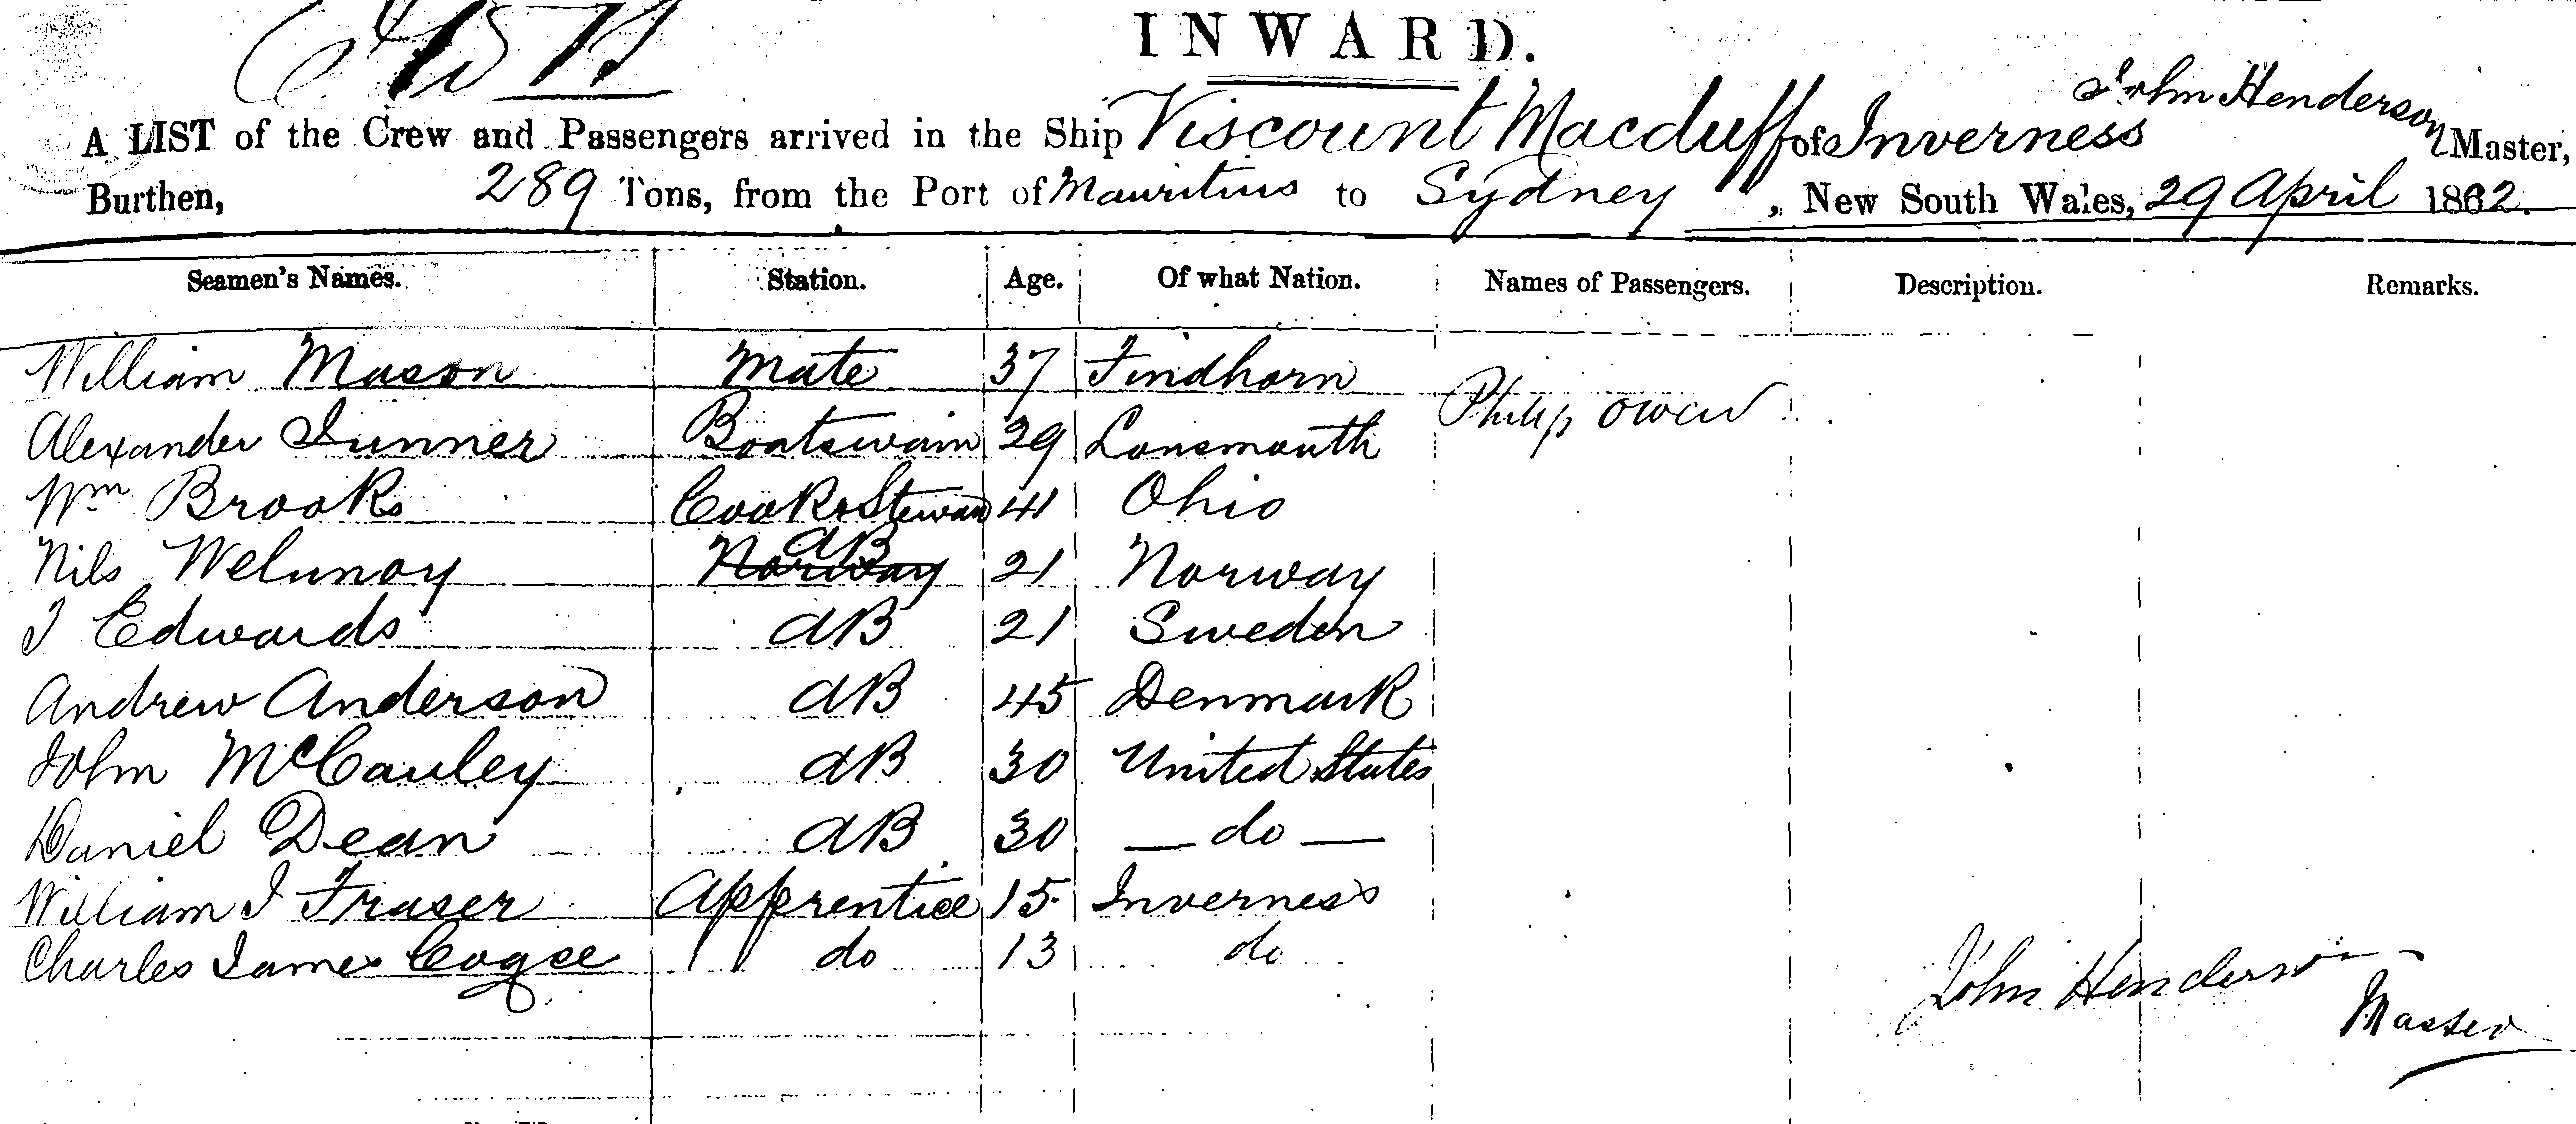 INWARD.
John Henderson
A LIST of the Crew and Passengers arrived in the Ship Viscount Macduff of Inverness Master,
Burthen, 289 Tons, from the Port of Mauritius to Sydney , New South Wales, 29 April 1862.
Seamen's Names. Station. Age. Of what Nation. Names of Passengers. Description. Remarks.
William Mason Mate 37 Findhorn Philip Owen
Alexander Boatswain 29 Losmouth
Wm Brooks Cook & Steward 41 Ohio
Nils AB Norway 21 Norway
J Edwards AB 21 Sweden
Andrew Anderson AB 45 Denmark
John McCauley AB 30 United States
Daniel Dean AB 30 — do —
William J Fraser Apprentice 15 Inverness
Charles James do 13 do
John Henderson
Master